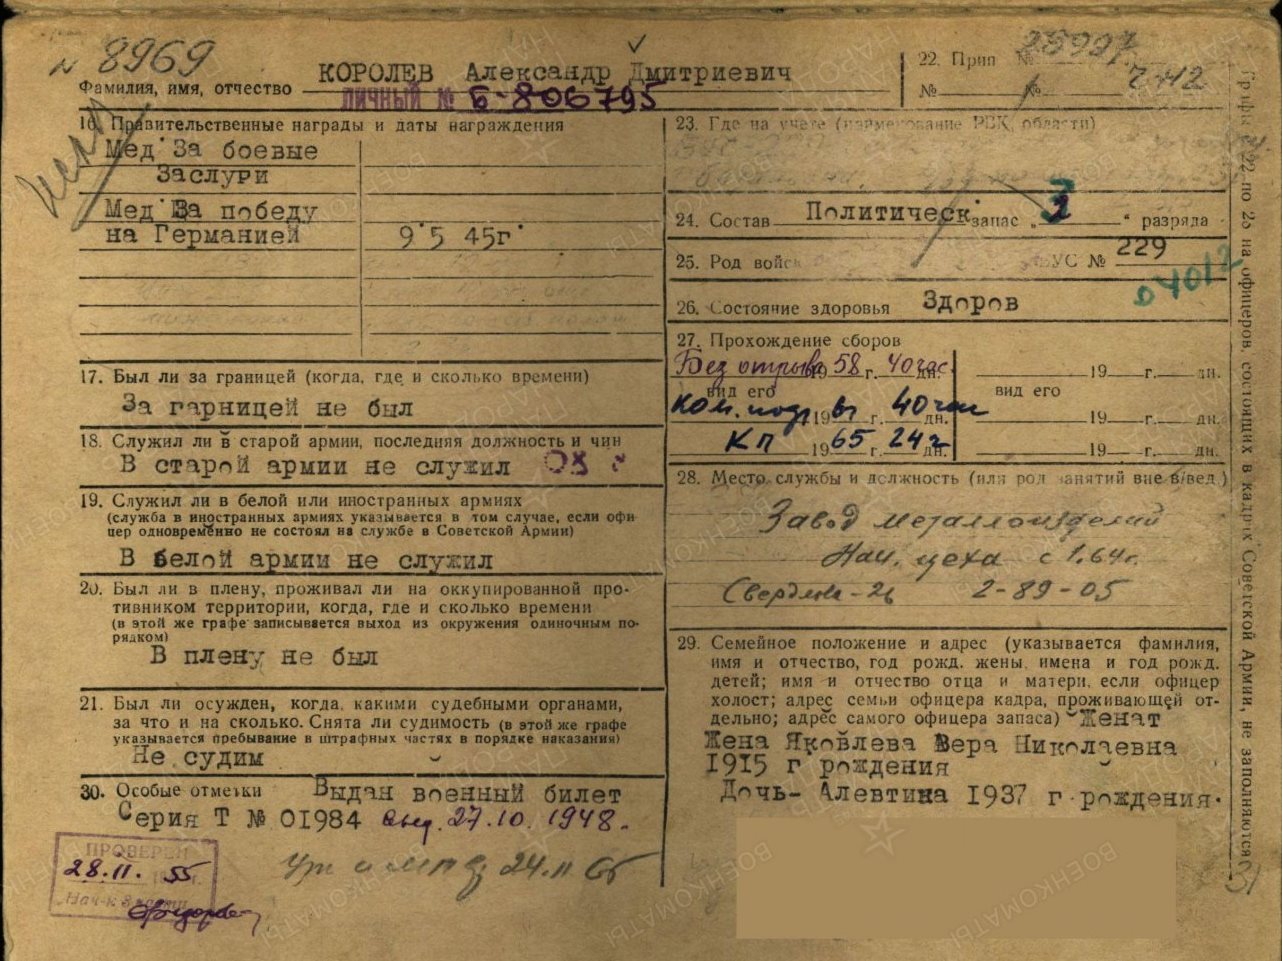 № 8969
Фамилия, имя, отчество КОРОЛЕВ Александр Дмитриевич
ЛИЧНЫЙ № Б-806795
16. Правительственные награды и даты награждения
Мед За боевые
Заслуги
Мед За победу
на Германией 9 5 45г
17. Был ли за границей (когда, где и сколько времени)
За гарницей не был
18. Служил ли в старой армии, последняя должность и чин
В старой армии не служил
19. Служил ли в белой или иностранных армиях
(служба в иностранных армиях указывается в том случае, если офи-
цер одновременно не состоял на службе в Советской Армии)
В белой армии не служил
20. Был ли в плену, проживал ли на оккупированной про-
тивником территории, когда, где и сколько времени
(в этой же графе записывается выход из окружения одиночным по-
рядком)
В плену не был
21. Был ли осужден, когда, какими судебными органами,
за что и на сколько. Снята ли судимость (в этой же графе
указывается пребывание в штрафных частях в порядке наказания)
Не судим
30. Особые отметки Выдан военный билет
Серия Т № 01984 27.10.1948.
24.11 65
ПРОВЕРЕН
28.11. 55
22. Прип №
№ №
23. Где на учете (наименование РВК, области)
24. Состав Политическ запас „ 2 “ разряда
25. Род войск ВУС № 229
04012
26. Состояние здоровья Здоров
27. Прохождение сборов
Без отрыва 1958 г. 40 час. дн. 19 г. дн.
вид его вид его
Ком. подг 1961 г. 40 час дн. 19 г. дн.
КП 1965 г. 24 ч дн. 19 г. дн.
28. Место службы и должность (или род занятий вне в/вед.)
Завод металлоизделий
Нач. цеха с 1.64г.
2-89-05
29. Семейное положение и адрес (указывается фамилия,
имя и отчество, год рожд. жены, имена и год рожд.
детей; имя и отчество отца и матери, если офицер
холост; адрес семьи офицера кадра, проживающей от-
дельно; адрес самого офицера запаса) Женат
Жена Яковлева Вера Николаевна
1915 г рождения
Дочь- Алевтина 1937 г рождения.
Графы 22 по 25 на офицеров, состоящих в кадрах Советской Армии, не заполняются